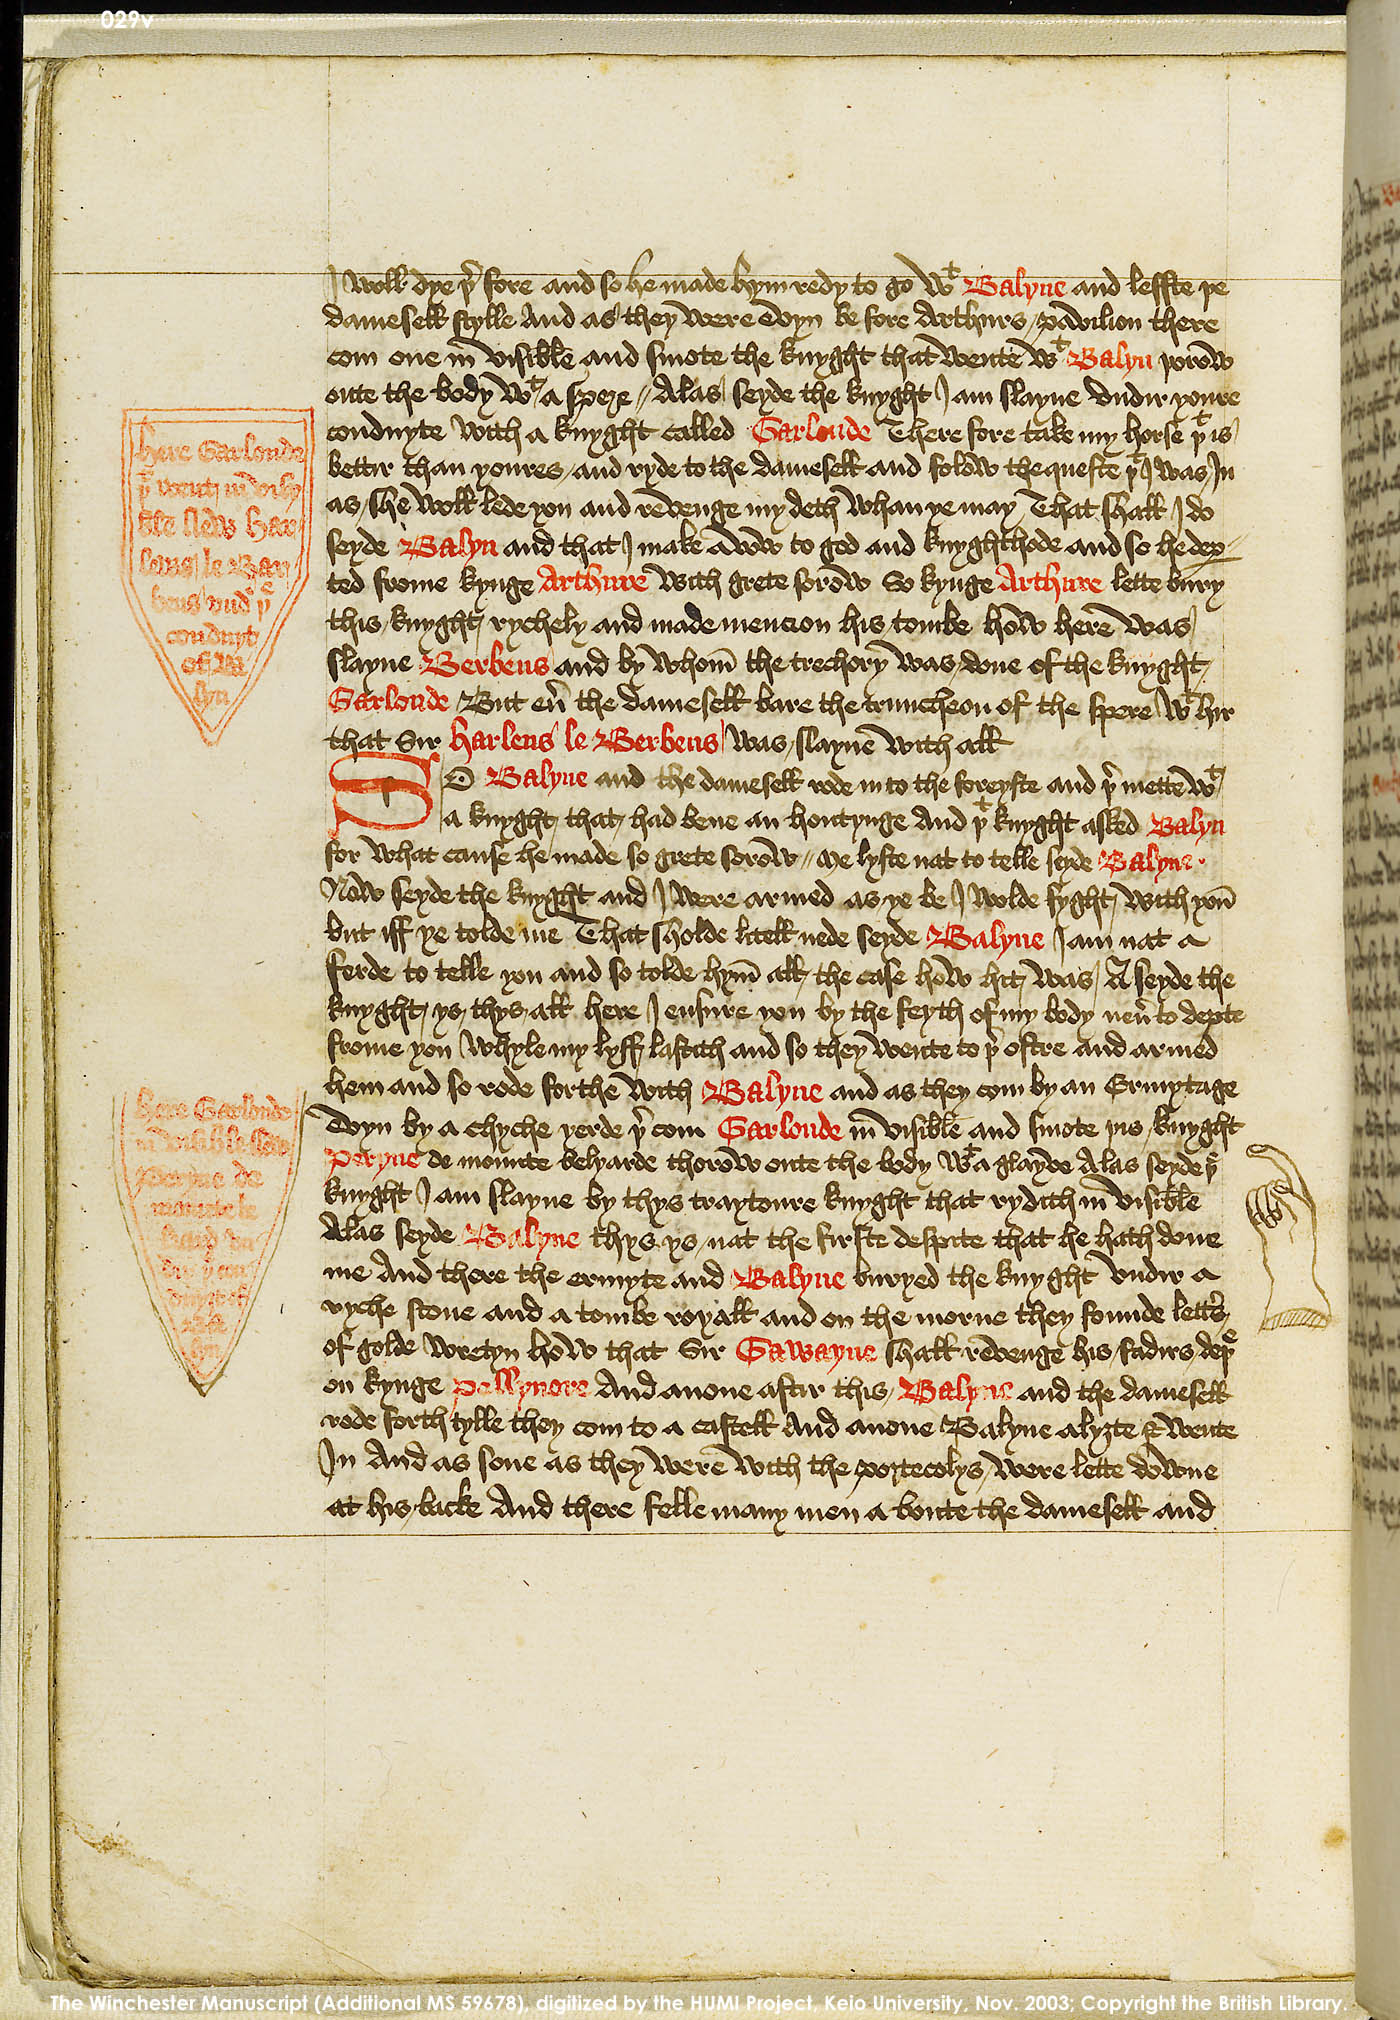 029v
I woll dye þer fore and so he made hym redy to go wt Balyne and leffte þe
damesell stylle And as they were evyn be fore Arthurs pavilion there
com one in visible and smote the knyght that wente wt Balyn þorow
oute the body wt a spere // Alas seyde the knyght I am slayne undir youre
conduyte with a knyght called Garlonde There fore take my horse þt is
bettir than youres and ryde to the damesell and folow the queste þt I was In
as she woll lede you and revenge my deth whan ye may That shall I do
seyde Balyn and that I make a vow to god and knyghthode and so he dep
ted frome kynge Arthure with grete sorow So kynge Arthure lette bury
this knyght rychely and made mencion his tombe how here was
slayne Berbeus and by whom the trechory was done of the knyght
Garlonde But ever the damesell bare the truncheon of the spere wt hir
that Sir harleus le Berbeus was slayne with all
SO Balyne and the damesell rode in to the foreyste and þer mette wt
a knyght that had bene an hontynge And þt knyght asked Balyn
for what cause he made so grete sorow // Me lyste nat to telle seyde Balyne
Now seyde the knyght and I were armed as ye be I wolde fyght with you
but iff ye tolde me That sholde litell nede seyde Balyne I am nat a
ferde to telle you and so tolde hym all the case how hit was A seyde the
knyght ys thys all here I ensure you by the feyth of my body never to departe
frome you whyle my lyff lastith and so they wente to þer ostre and armed
hem and so rode forthe with Balyne and as they com by an Ermytage
evyn by a chyche yerde þer com Garlonde in visible and smote þis knyght
Peryne de mounte belyarde thorow oute the body wt a glayve Alas seyde þe
knyght I am slayne by thys traytoure knyght that rydith in visible
Alas seyde Balyne thys ys nat the firste despite that he hath done
me And there the ermyte and Balyne buryed the knyght undir a
ryche stone and a tombe royall and on the morne they founde letters
of golde wretyn how that Sir Gawayne shall revenge his fadirs deþe
on kynge Pellynore And anone aftir this Balyne and the damesell
rode forth tylle they com to a castell And anone Balyne alyzte & wente
In And as sone as they were with the portecolys were lette downe
at his backe And there felle many men a boute the damesell and
here Garlonde
þt went in visy
ble slew har
leus le Bar
beus undir þe
conduyt
off Ba
lyn
here Garlonde
in visible slew
Peryne de
mounte be
liard un
dir þe con
duyte off
Ba
lyn
The Winchester Manuscript (Additional MS 59678), digitized by the HUMI Project, Keio University, Nov. 2003; Copyright the British Library.